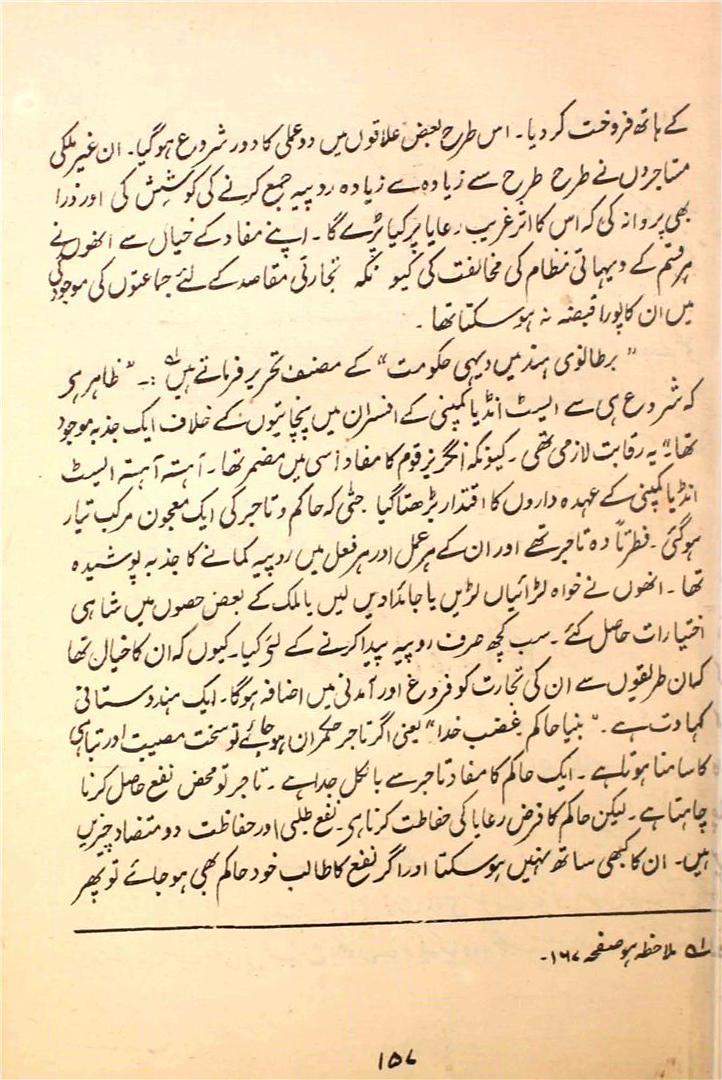 کے ہاتھ فروخت کر دیا۔ اس طرح بعض علاقوں میں دو عملی کا دور شروع ہوگیا۔ ان غیر ملکی
متاجروں نے طرح طرح سے زیادہ سے زیادہ روپیہ جمع کرنے کی کوشش کی اور ذرا
بھی پروا نہ کی کہ اس کا اثر غریب رعایا پر کیا پڑے گا۔ اپنے مفاد کے خیال سے انھوں نے
ہر قسم کے دیہاتی نظام کی مخالفت کی کیونکہ تجارتی مقاصد کے لئے جماعتوں کی موجودگی
میں ان کا پورا قبضہ نہ ہو سکتا تھا۔
"برطانوی ہند میں دیہی حکومت" کے مصنف تحریر فرماتے ہیں لہ :۔ "ظاہر ہے
کہ شروع ہی سے ایسٹ انڈیا کمپنی کے افسران میں پنچائیتوں کے خلاف ایک جذبہ موجود
تھا" یہ رقابت لازمی تھی۔ کیونکہ انگریز قوم کا مفاد اسی میں مضمر تھا۔ آہستہ آہستہ ایسٹ
انڈیا کمپنی کے عہدہ داروں کا اقتدار بڑھتا گیا حتیٰ کہ حاکم و تاجر کی ایک معجون مرکب تیار
ہو گئی۔ فطرتاً وہ تاجر تھے اور ان کے ہر عمل اور ہر فعل میں روپیہ کمانے کا جذبہ پوشیدہ
تھا۔ انھوں نے خواہ لڑائیاں لڑیں یا جائدادیں لیں یا ملک کے بعض حصوں میں شاہی
اختیارات حاصل کئے۔ سب کچھ صرف روپیہ پیدا کرنے کے لئے کیا۔ کیوں کہ ان کا خیال تھا
کہ ان طریقوں سے ان کی تجارت کو فروغ اور آمدنی میں اضافہ ہوگا۔ ایک ہندوستانی
کہاوت ہے۔ "بنیا حاکم غضب خدا" یعنی اگر تاجر حکمران ہو جائے تو سخت مصیبت اور تباہی
کا سامنا ہوتا ہے۔ ایک حاکم کا مفاد تاجر سے بالکل جدا ہے۔ تاجر تو محض نفع حاصل کرنا
چاہتا ہے۔ لیکن حاکم کا فرض رعایا کی حفاظت کرنا ہے۔ نفع طلبی اور حفاظت دو متضاد چیزیں
ہیں۔ ان کا کبھی ساتھ نہیں ہو سکتا اور اگر نفع کا طالب خود حاکم بھی ہو جائے تو پھر
لہ ملاحظہ ہو صفحہ ۱۶۷۔
۱۵۷